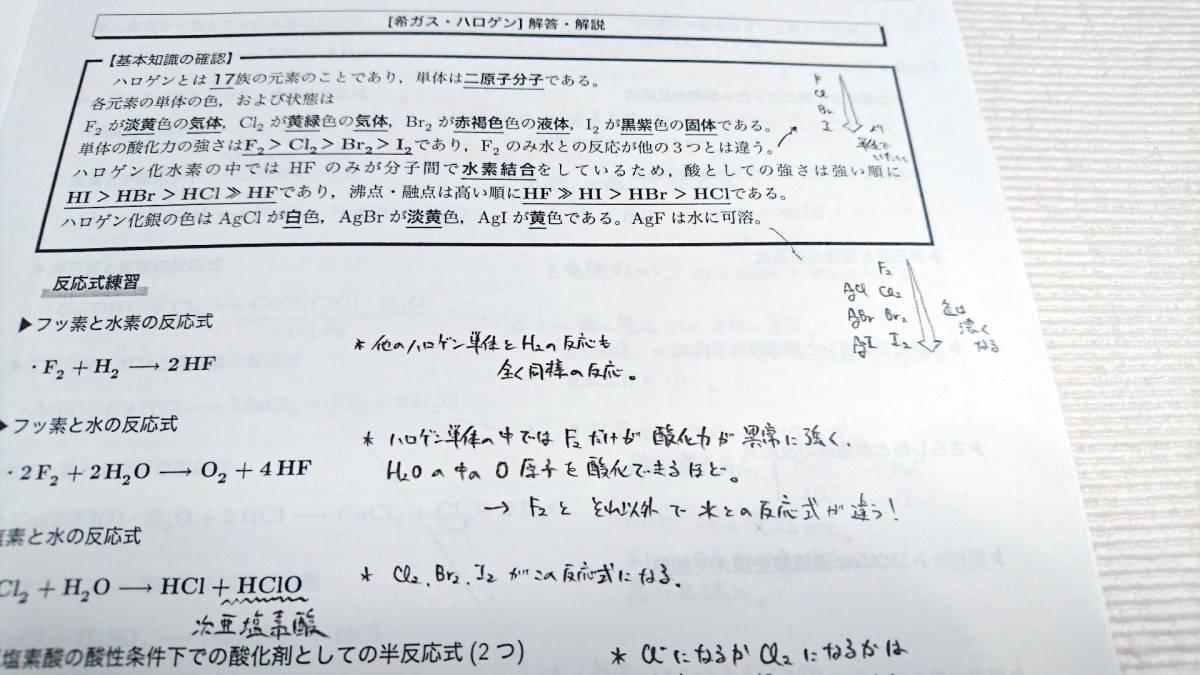 [希ガス・ハロゲン] 解答・解説
【基本知識の確認】
ハロゲンとは 17族の元素のことであり，単体は二原子分子である。
各元素の単体の色，および状態は
F₂ が淡黄色の気体，Cl₂ が黄緑色の気体，Br₂ が赤褐色色の液体，I₂ が黒紫色の固体である。
単体の酸化力の強さはF₂ > Cl₂ > Br₂ > I₂であり，F₂ のみ水との反応が他の3つとは違う。
ハロゲン化水素の中では HF のみが分子間で水素結合をしているため，酸としての強さは強い順に
HI > HBr > HCl ≫ HFであり，沸点・融点は高い順にHF ≫ HI > HBr > HClである。
ハロゲン化銀の色は AgCl が白色，AgBr が淡黄色，AgI が黄色である。AgF は水に可溶。
F
Cl₂
Br₂
I
F₂
AgCl Cl₂
AgBr Br₂
AgI I₂
色は
濃く
なる
反応式練習
▶フッ素と水素の反応式
・F₂ + H₂ ⟶ 2 HF
* 他のハロゲン単体とH₂の反応も
全く同様の反応。
▶フッ素と水の反応式
・2 F₂ + 2 H₂O ⟶ O₂ + 4 HF
* ハロゲン単体の中では F₂だけが 酸化力が 異常に強く、
H₂O の中の O 原子を酸化できるほど。
→ F₂と それ以外で 水との反応式が違う!
塩素と水の反応式
Cl₂ + H₂O ⟶ HCl + HClO
* Cl₂、Br₂、I₂ がこの反応式になる。
次亜塩素酸
塩素酸の酸性条件下での酸化剤としての半反応式 (2つ)
* Cl⁻になるか Cl₂ になるかは